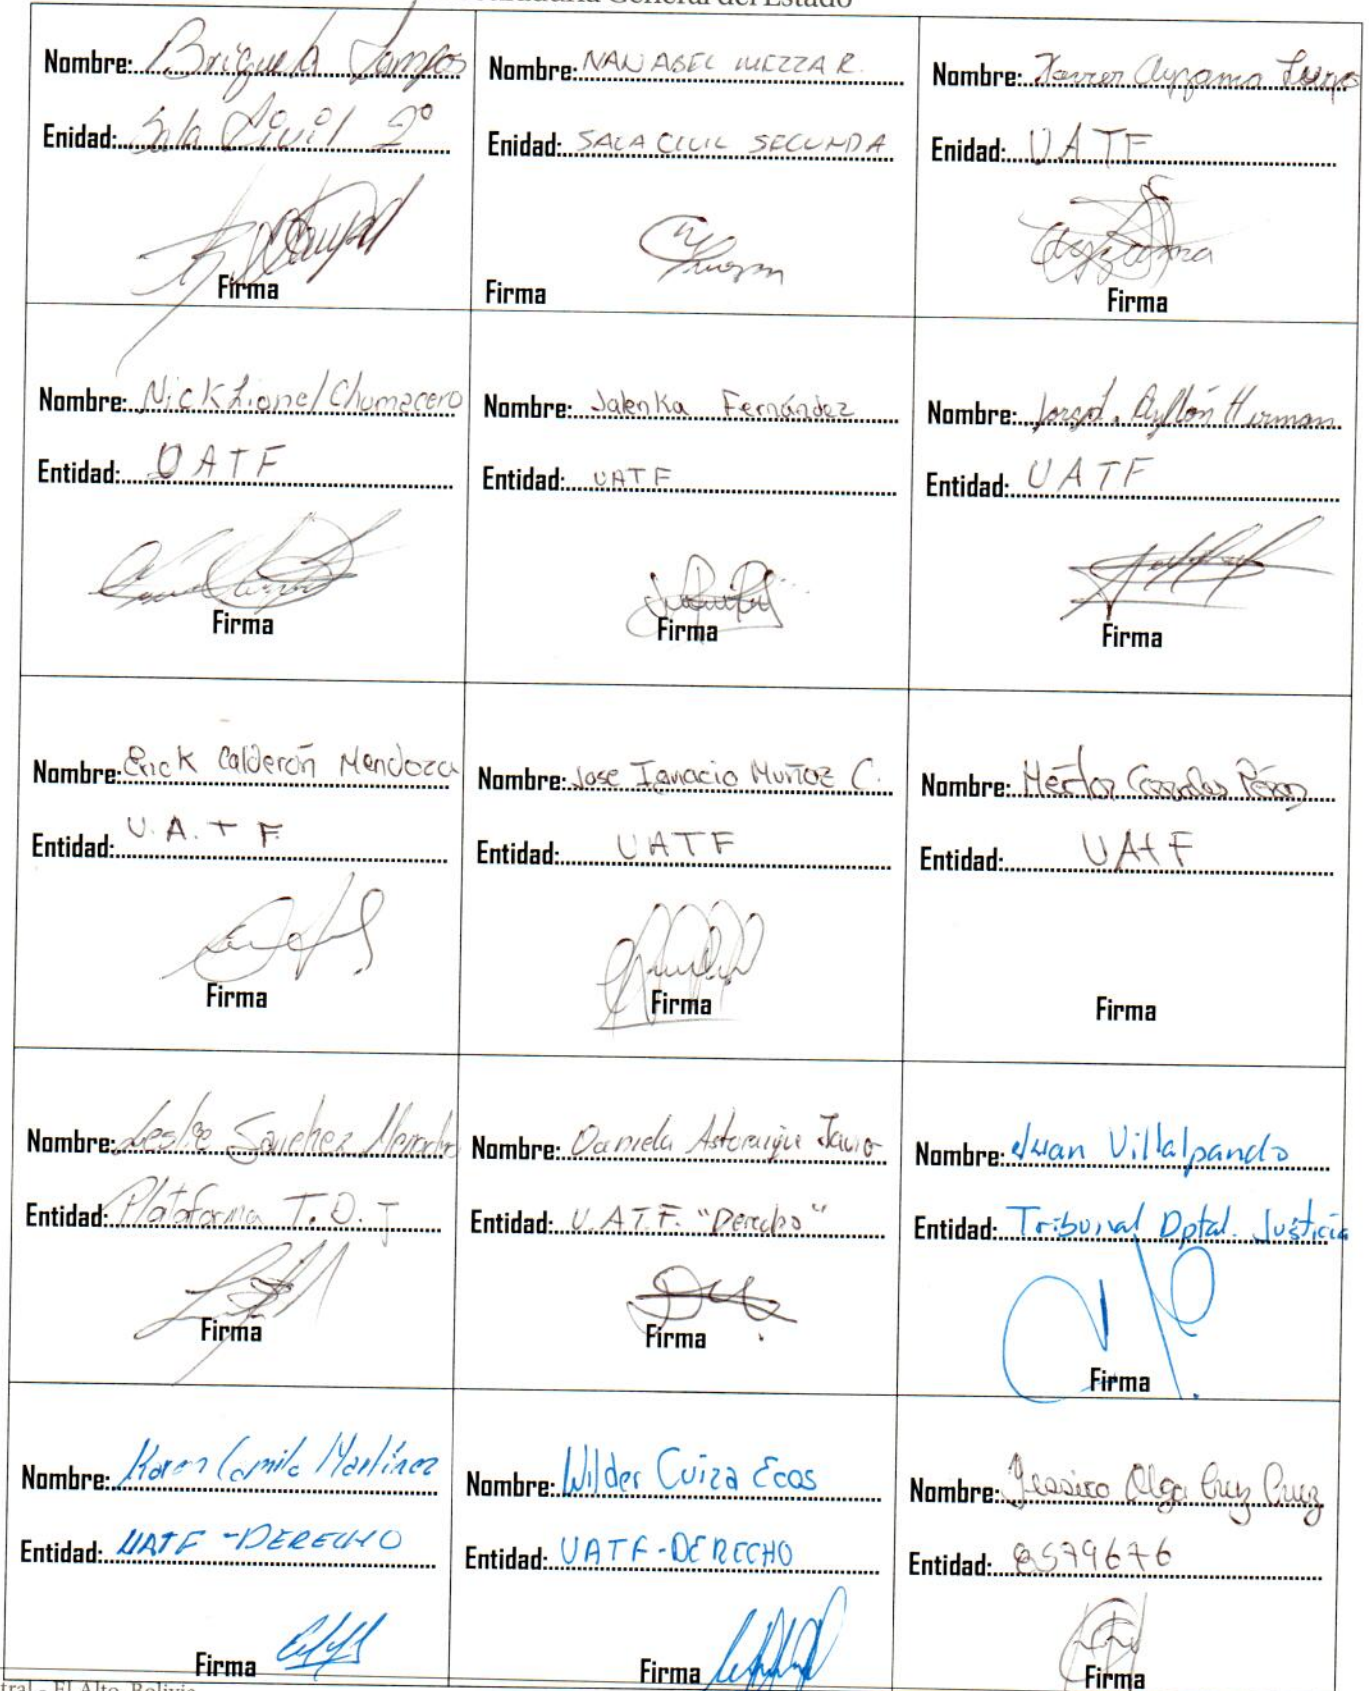 General del Estado
Nombre: Brigueh Campos
Enidad: Sala Civil 2°
Firma
Nombre: NAN ABEL MEZZA R.
Enidad: SALA CIVIL SEGUNDA
Firma
Nombre: Ayzama
Enidad: UATF
Firma
Nombre: Nick Lionel Chumacero
Entidad: UATF
Firma
Nombre: Jalenka Fernández
Entidad: UATF
Firma
Nombre: Ayllón
Entidad: UATF
Firma
Nombre: Erick Calderón Mendoza
Entidad: U.A.T F.
Firma
Nombre: Jose Ignacio Muñoz C.
Entidad: UATF
Firma
Nombre: Héctor
Entidad: UAtF
Firma
Nombre: Leslie Sanchez
Entidad: Plataforma T.D.J
Firma
Nombre: Daniela
Entidad: U.A.T.F. "Derecho"
Firma
Nombre: Juan Villalpando
Entidad: Tribunal Dptal. Justicia
Firma
Nombre: Karen Camila Martínez
Entidad: UATF - DERECHO
Firma
Nombre: Wilder Cuiza Ecos
Entidad: UATF-DERECHO
Firma
Nombre: Jessica Olga Cruz Cruz
Entidad: 8579676
Firma
tral - El Alto, Bolivia